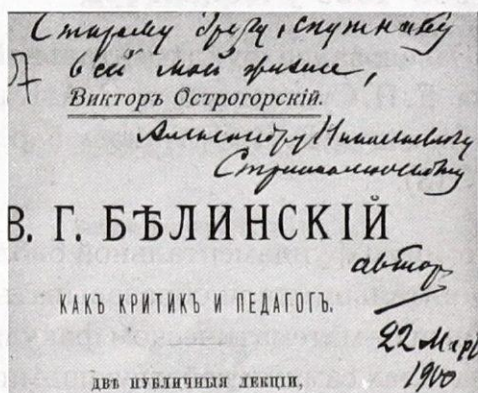 Старому другу, спутнику
всей моей жизни,
Викторъ Острогорскій.
Александру Николаевичу
Страннолюбскому
В. Г. БѢЛИНСКІЙ
авторъ
КАКЪ КРИТИКЪ И ПЕДАГОГЪ.
22 Март
1900
ДВѢ ПУБЛИЧНЫЯ ЛЕКЦІИ,